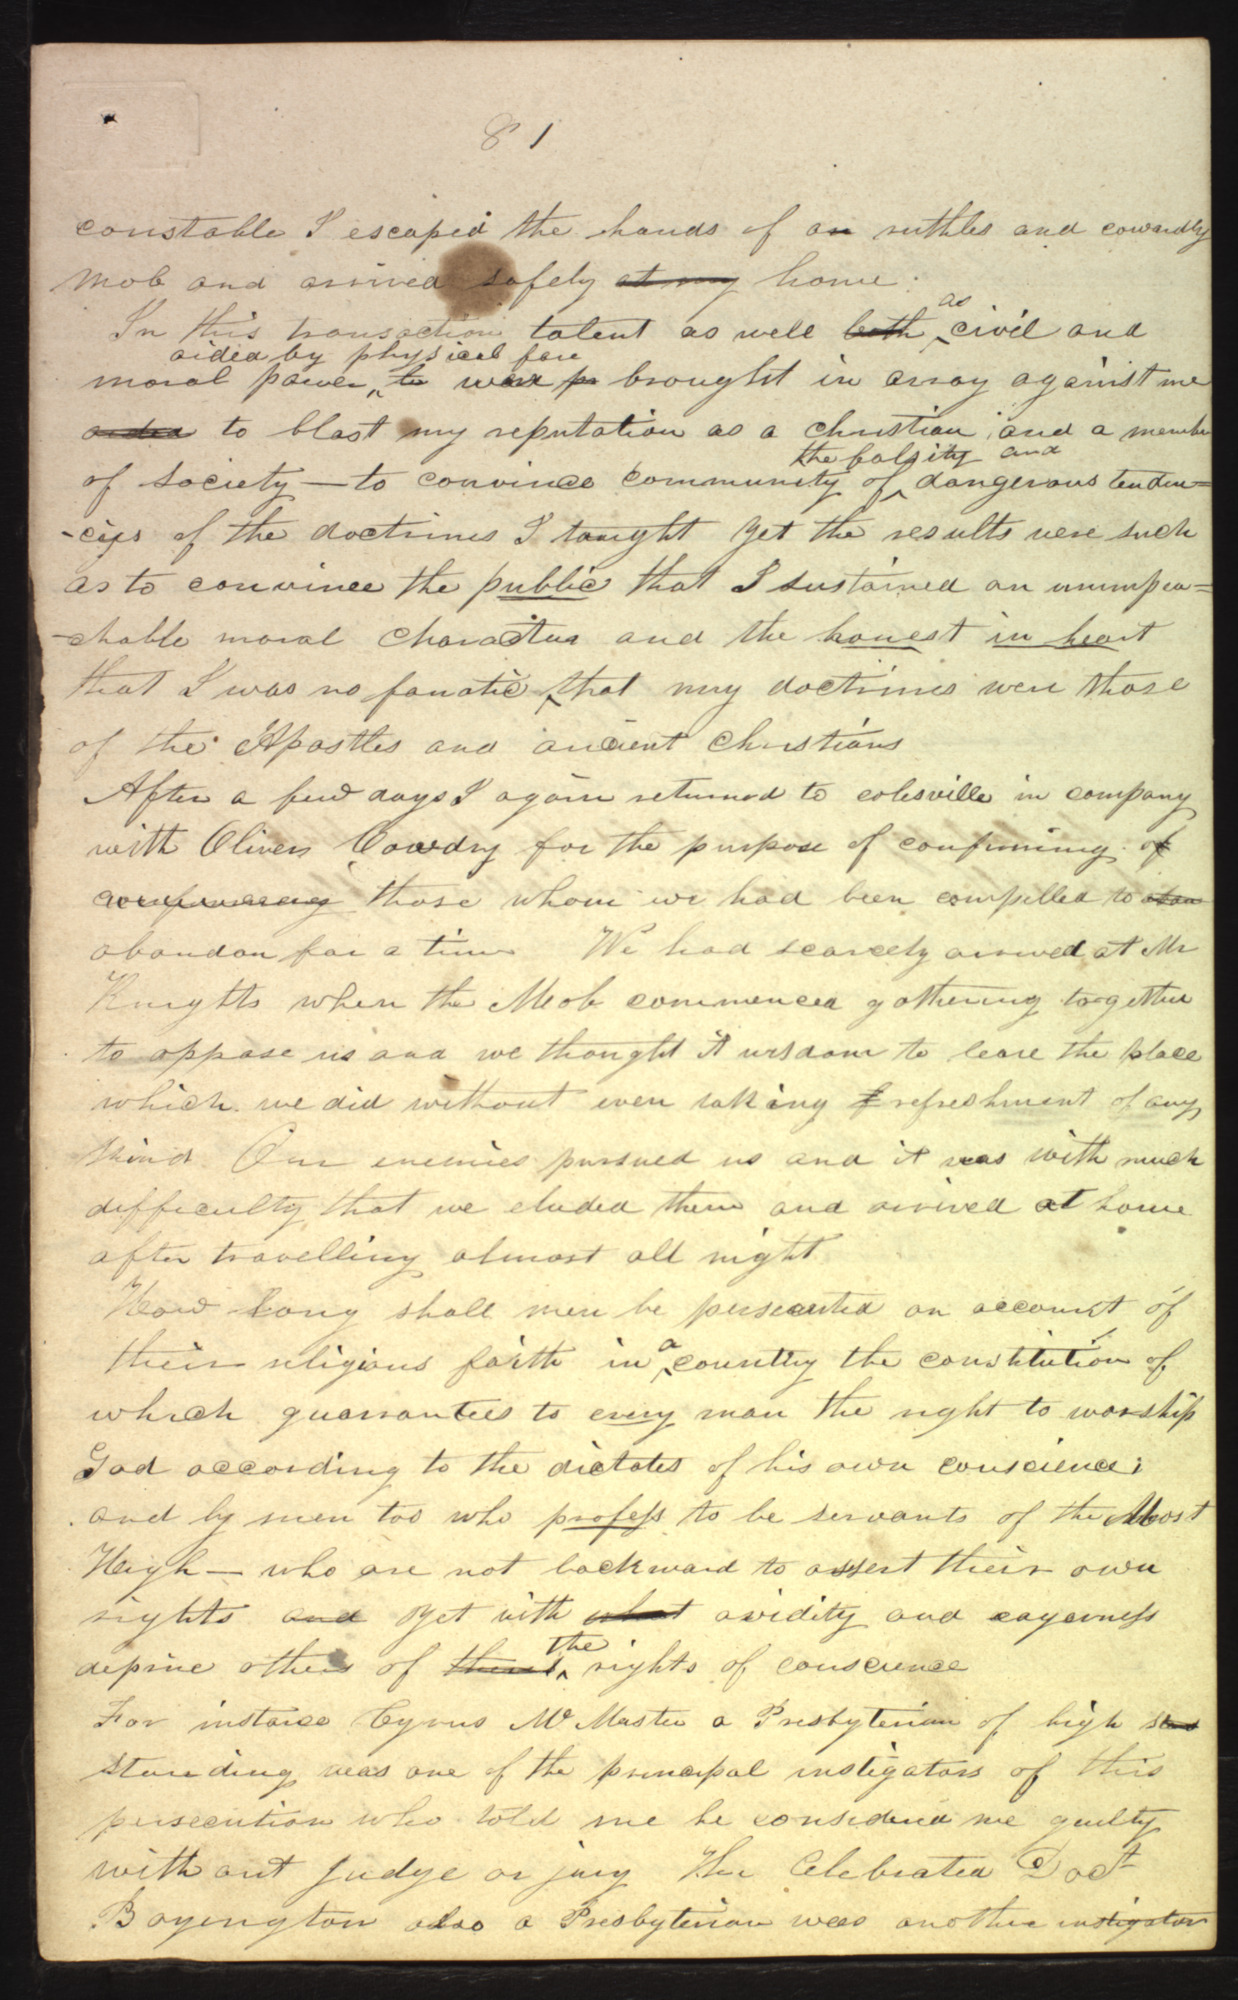 81
constable I escaped the hands of an ruthles and cowardly
mob and arrived safely at my home.
as
In this transaction talent as well both civil and
aided by physical force
moral power, to were brought in array against me
aided to blast my reputation as a christian and a membe
the falsity and
of society — to convince community of dangerous tenden=
-cies of the doctrines I taught yet the results were such
as to convince the public that I sustained an unimpea=
-chable moral charactur and the honest in heart
that I was no fanatic, that my doctrines were those
of the Apostles and ancient christians
After a few days I again returned to colesville in company
with Oliver Cowdry for the purpose of confirming of
confirming those whom we had been compelled to aban
abandon for a time We had scarcely arrived at Mr
Knights when the Mob commenced gathering together
to oppose us and we thought it wisdom to leave the place
which we did without even taking refreshment of any
kind Our enemies pursued us and it was with much
difficulty that we eluded them and arived at home
after travelling almost all night
How long shall men be persecuted on account of
a
their religious faith in country the constitution of
which guarrantees to every man the right to worship
God according to the dictates of his own conscience;
and by men too who profess to be servants of the Most
High — who are not backward to assert their own
rights and yet with what avidity and eagerness
the
deprive others of rights of conscience
For instance Cyrus Mc Master a Presbyterian of high
standing was one of the principal instigators of this
persecution who told me he considered me guilty
without judge or jury The celebrated Doct
Boyington also a Presbyterian was another instigator